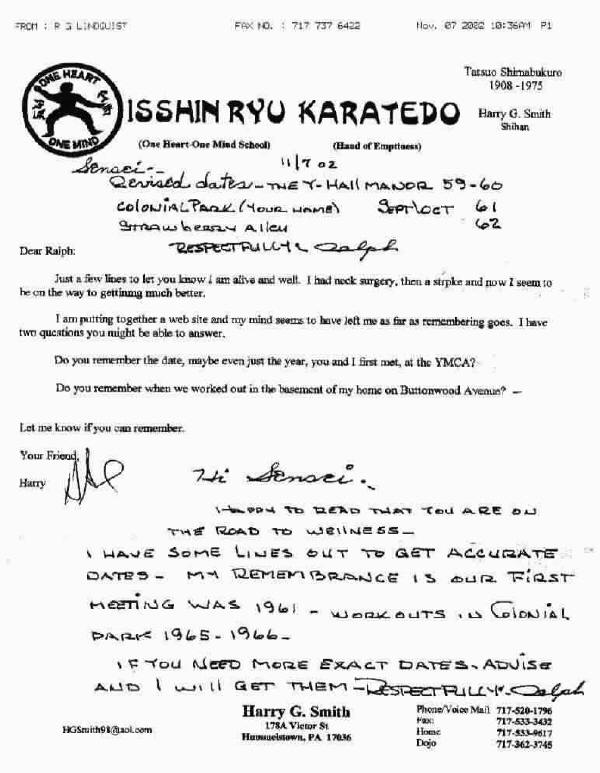 FROM : R G LINDQUIST FAX NO. : 717 737 6422 Nov. 07 2002 10:36AM P1
ONE HEART
ONE MIND
Tatsuo Shimabukuro
1908 -1975
ISSHIN RYU KARATEDO
Harry G. Smith
Shihan
(One Heart-One Mind School) (Hand of Emptiness)
Sensei - 11/7 02
Revised dates - THE Y- HALL MANOR 59-60
COLONIAL PARK (YOUR HOME) SEPT\OCT 61
STRAWBERRY Alley 62
RESPECTFULLY Ralph
Dear Ralph:
Just a few lines to let you know i am alive and well. I had neck surgery, then a strpke and now I seem to
be on the way to gettinmg much better.
I am putting together a web site and my mind seems to have left me as far as remembering goes. I have
two questions you might be able to answer.
Do you remember the date, maybe even just the year, you and I first met, at the YMCA?
Do you remember when we worked out in the basement of my home on Buttonwood Avenue?
Let me know if you can remember.
Your Friend,
Harry
Hi Sensei -
HAPPY TO READ THAT YOU ARE ON
THE ROAD TO WEllNESS -
I HAVE SOME LINES OUT TO GET ACCURATE
DATES - MY REMEMBRANCE IS OUR FIRST
MEETING WAS 1961 - WORKOUTS IN COLONIAL
PARK 1965 - 1966 -
IF YOU NEED MORE EXACT DATES - ADVISE
AND I WILL GET THEM - RESPECTFULLY - Ralph
Harry G. Smith
178A Victor St
Hummelstown, PA 17036
HGSmith98@aol.com
Phone/Voice Mail 717-520-1796
Fax: 717-533-3432
Home 717-533-9617
Dojo 717-362-3745